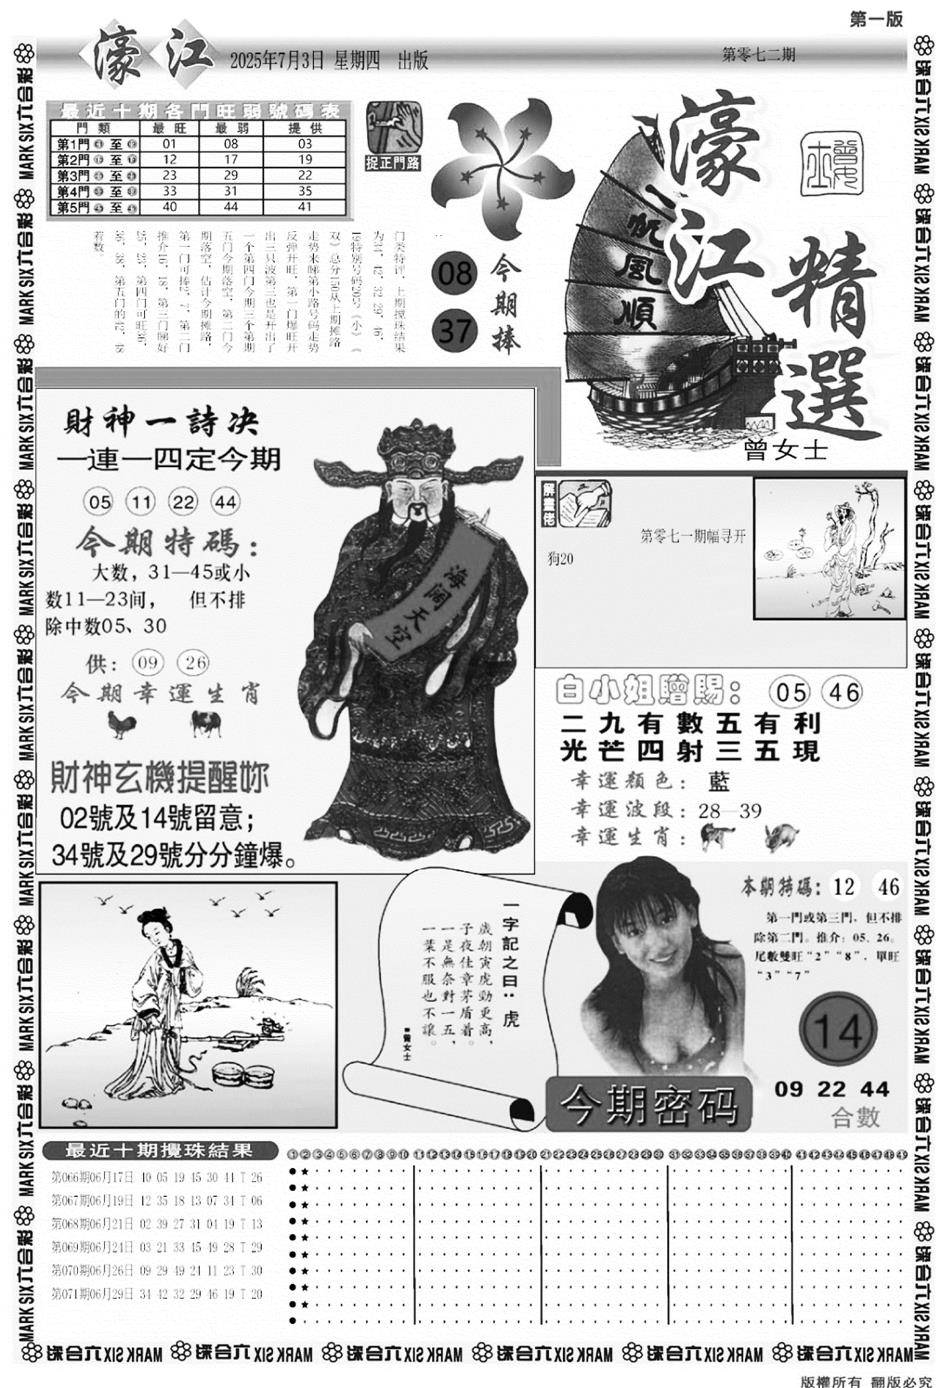 第一版
濠江
2025年7月3日 星期四 出版
第零七二期
最近十期各門旺弱號碼表
門 類 最 旺 最 弱 提 供
第1門 至 01 08 03
第2門 至 12 17 19
第3門 至 23 29 22
第4門 至 33 31 35
第5門 至 40 44 41
捉正門路
今期捧
08
37
濠江
精選
一帆風順
曾女士
门类特评，上期搅珠结果
反弹开旺，第一门爆旺开
出三只波第三也是开出了
一个第四门今期三个第期
五门今期落空，第二门今
期落空，估计今期摊路，
着数。
財神一詩决
一連一四定今期
05 11 22 44
今期特碼：
大数，31—45或小
数11—23间， 但不排
除中数05、30
供：09 26
今期幸運生肖
財神玄機提醒妳
02號及14號留意；
34號及29號分分鐘爆。
海闊天空
解畫佬
第零七一期幅寻开
狗20
白小姐贈賜：05 46
二九有數五有利
光芒四射三五現
幸運顏色：藍
幸運波段：28—39
幸運生肖：
一字記之曰：虎
歲朝寅虎勁更高，
子夜佳章茅盾着。
一是無奈對一五，
一葉不服也不讓。
■曾女士
本期特碼：12 46
第一門或第三門，但不排
除第二門。推介：05、26。
尾數雙旺“2”“8”，單旺
“3”“7”
14
今期密码
09 22 44
合數
最近十期攪珠結果
第066期06月17日 40 05 19 45 30 44 T 26
第067期06月19日 12 35 18 13 07 34 T 06
第068期06月21日 02 39 27 31 04 19 T 13
第069期06月24日 03 21 33 45 49 28 T 29
第070期06月26日 09 29 49 24 11 23 T 30
第071期06月29日 34 42 32 29 46 19 T 20
①②③④⑤⑥⑦⑧⑨⑩⑪⑫⑬⑭⑮⑯⑰⑱⑲⑳㉑㉒㉓㉔㉕㉖㉗㉘㉙㉚㉛㉜㉝㉞㉟㊱㊲㊳㊴㊵㊶㊷㊸㊹㊺㊻㊼㊽㊾
MARK SIX六合彩
版權所有 翻版必究